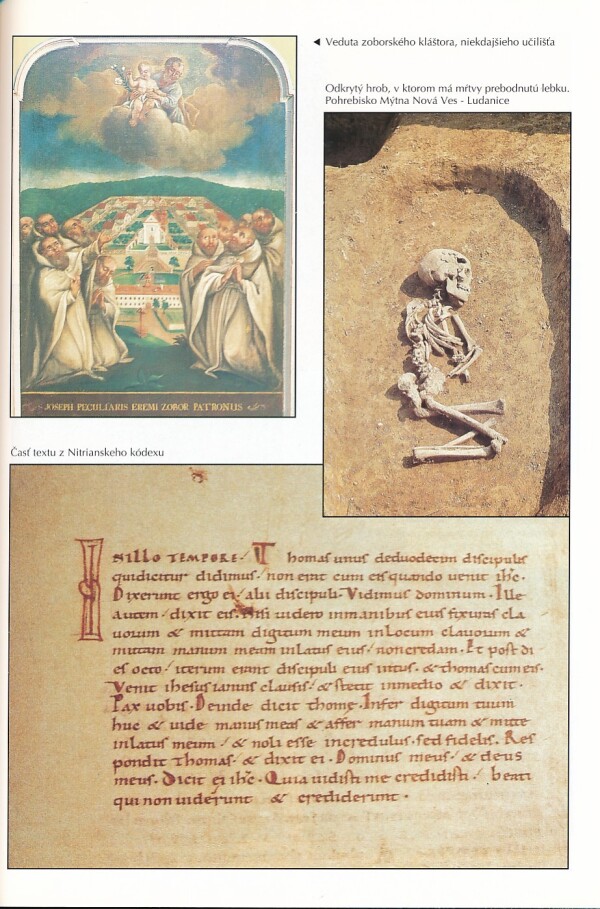 ◄ Veduta zoborského kláštora, niekdajšieho učilišťa
Odkrytý hrob, v ktorom má mŕtvy prebodnutú lebku.
Pohrebisko Mýtna Nová Ves - Ludanice
JOSEPH PECULIARIS EREMI ZOBOR PATRONUS
Časť textu z Nitrianskeho kódexu
INILLO TEMPORE. Thomas unus deduodecim discipulis
quidicitur didimus. non erat cum eis quando uenit ihc.
Dixerunt ergo ei alii discipuli. Vidimus dominum. Ille
autem. dixit eis. Nisi uidero inmanibus eius fixuras cla
uorum & mittam digitum meum inlocum clauorum &
mittam manum meam inlatus eius. noncredam. Et post di
es octo. iterum erant discipuli eius intus. & thomas cum eis.
Venit ihesus ianuis clausis. & stetit inmedio & dixit.
Pax uobis. Deinde dicit thome. Infer digitum tuum
huc & uide manus meas & affer manum tuam & mitte
inlatus meum. & noli esse incredulus. sed fidelis. Res
pondit Thomas. & dixit ei. Dominus meus. & deus
meus. Dicit ei ihc. Quia uidisti me credidisti. beati
qui non uiderunt & crediderunt.